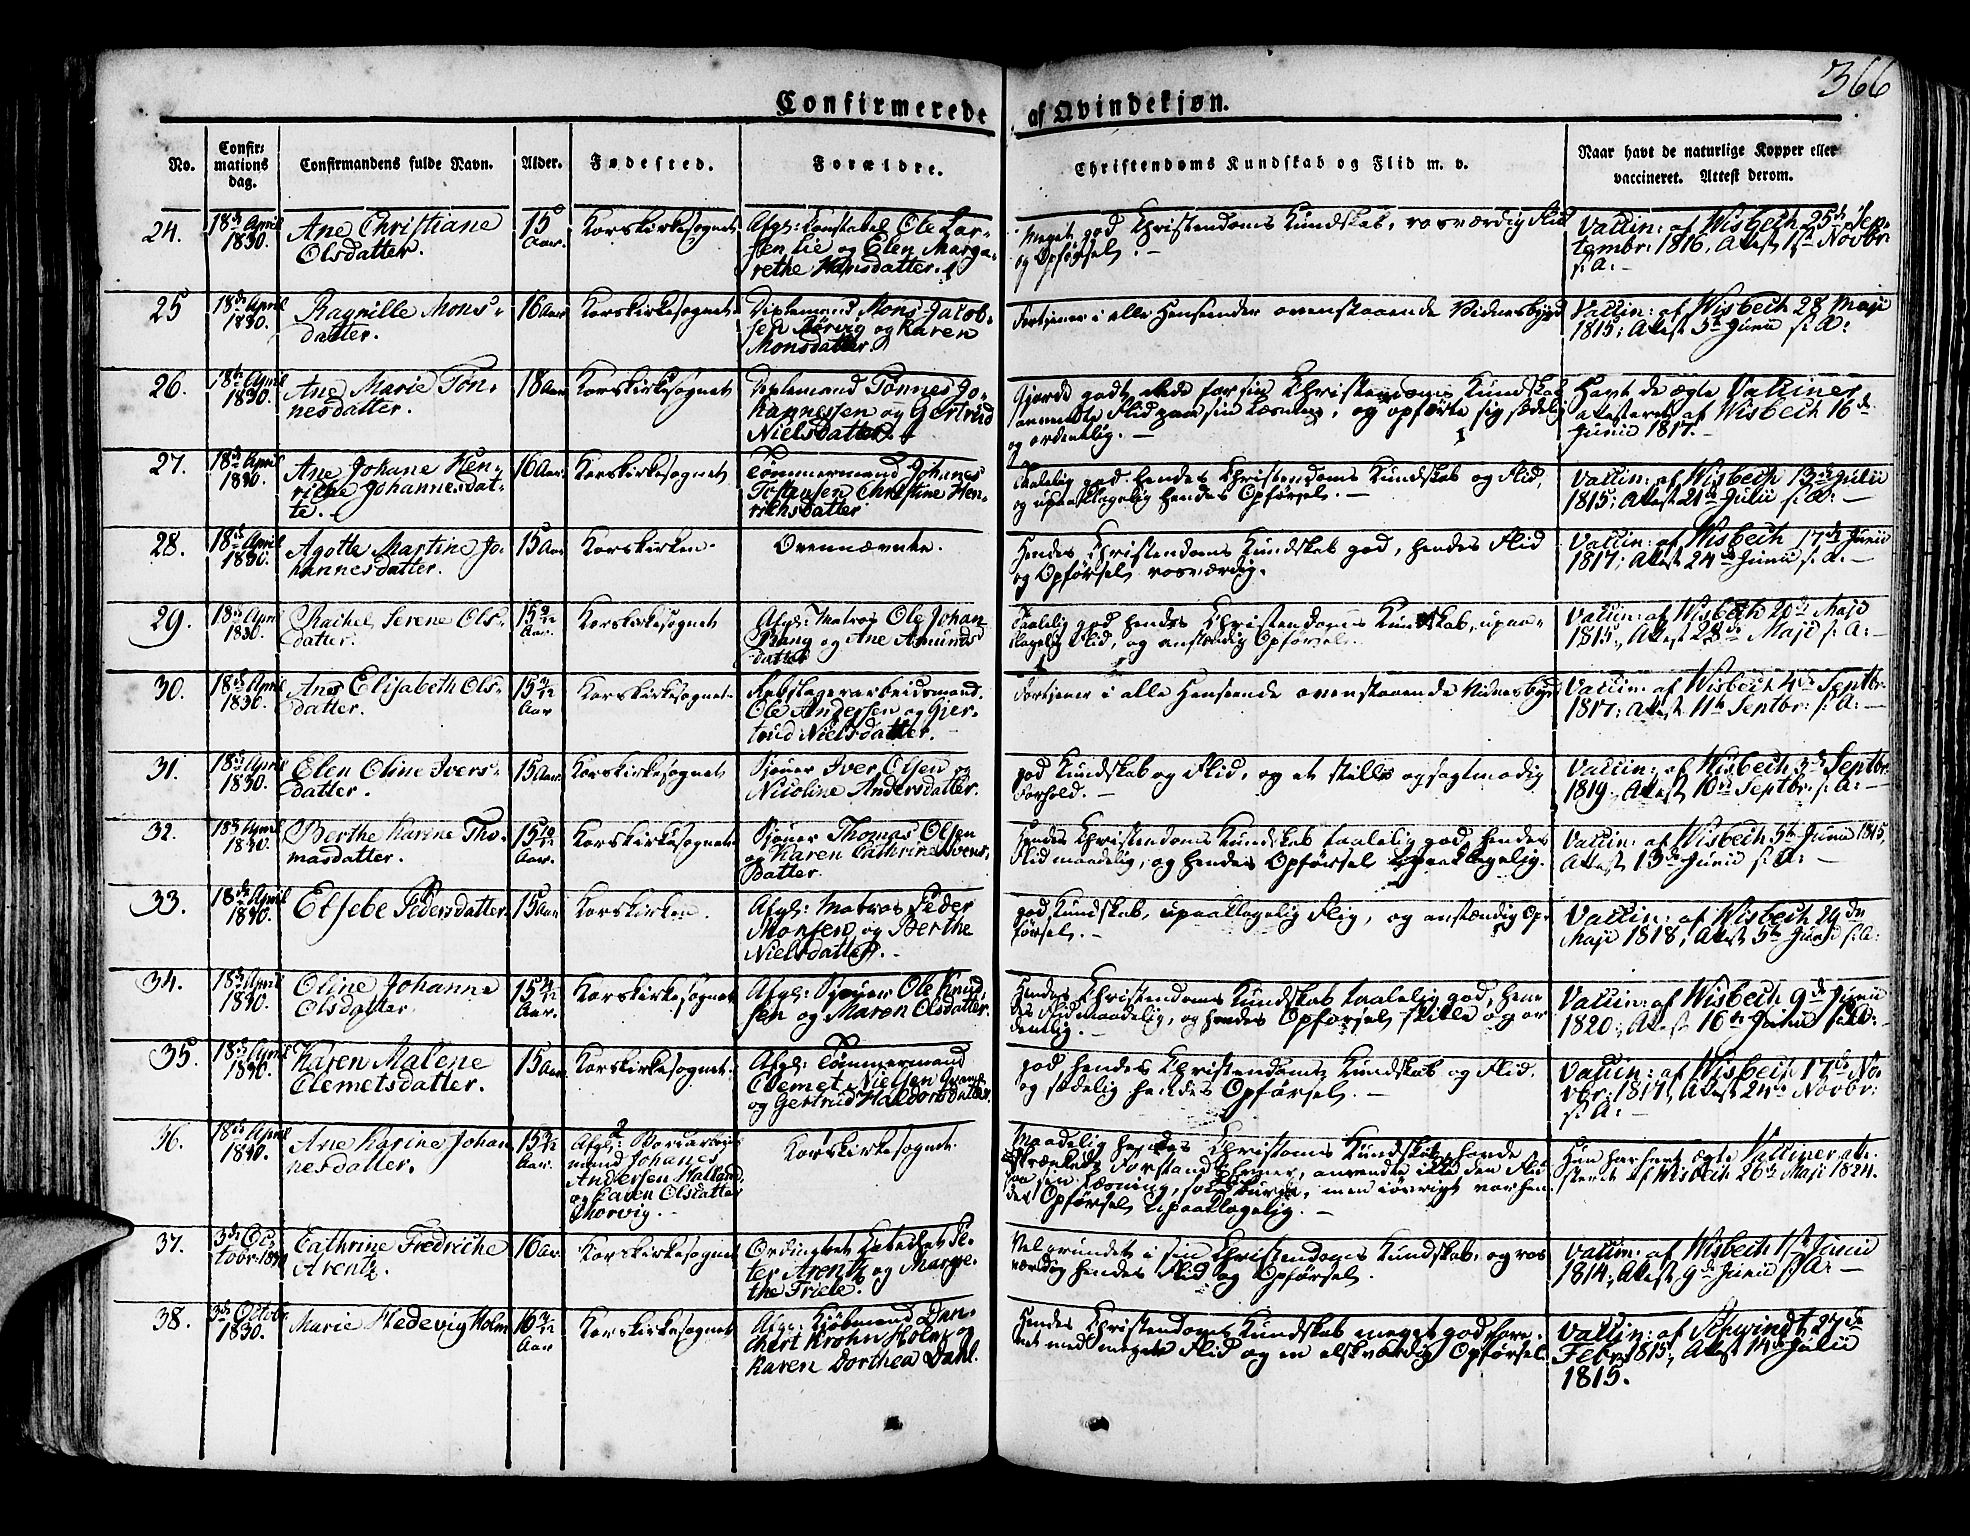 366
Confirmerede af Qvindekjøn.
No.
Confir-
mations
dag.
Confirmandens fulde Navn.
Alder.
Fødested.
Forældre.
Christendoms Kundskab og Flid m. v.
Naar havt de naturlige Kopper eller
vaccineret. Attest derom.
24. 18de April 1830. Ane Christiane Olsdatter. 15 Aar. Korskirkesognet
Afgl: Konstabel Ole Lar-
sen Lie og Elen Marga-
rethe Hansdatter.
Meget god Christendoms Kundskab, rosværdig Flid
og Opførsel. -
Vaccin: af Wisbech 25de Sep-
tembr: 1816, Attest 1ste Novbr:
s: A: -
25 18de April 1830. Ragnille Mons-
datter. 16 Aar Korskirkesognet
Piplemand Mons Jacob-
sen og Karen
Monsdatter.
Fortjener i alle Henseender ovenstaaende Vidnesbyrd
Vaccin: af Wisbech 28 Maji
1815; Attest 5te Junii s: A:
26. 18de April 1830. Ane Marie Tøn-
nesdatter. 18 Aar Korskirkesognet
Piplemand Tønnes Jo-
hannessen og Gertrud
Nielsdatter.
Gjorde godt rede for sin Christendoms Kundskab
anvendte Flid paa sin Læsning, og opførte sig sædelig
og ordentlig. -
Havt de ægte Vacciner
attesteret af Wisbech 16de
Junii 1817. -
27. 18de April 1830. Ane Johane Hen-
riche Johannesdat-
te. 16 Aar. Korskirkesognet
Tømmermand Johanes
Tostensen Christine Hen-
richsdatter
Taalelig god hendes Christendoms Kundskab og Flid,
og upaaklagelig hendes Opførsel. -
Vaccin: af Wisbech 13de Julii
1815; Attest 21de Julii s: A: -
28. 18de April 1830. Agotte Martine Jo-
hannesdatter. 15 Aar Korskirken. Ovennævnte.
Hendes Christendoms Kundskab god, hendes Flid
og Opførsel rosværdig.
Vaccin: af Wisbech 17de Junii
1817; Attest 24de Junii s: A: -
29. 18de April 1830. Rachel Serene Ols-
datter. 15 Aar. Korskirkesognet
Afgl: Matros Ole Johan
Bang og Ane Asmunds
datter
Taalelig god hendes Christendoms Kundskab, upaa-
klagelig Flid, og anstændig Opførsel.
Vaccin: af Wisbech 20de Maji
1815, Attest 28de Maji s: A: -
30. 18de April 1830. Ane Elisabeth Ols-
datter. 15 3/12 Aar Korskirkesognet.
Rebslagerarbeidsmand.
Ole Andersen og Gjer-
trud Nielsdatter. -
Fortjener i alle Henseende ovenstaaende Vidnesbyrd
Vaccin: af Wisbech 4de Septbr:
1817: Attest 11te Septbr: s: A: -
31. 18de April 1830. Elen Oline Ivers-
datter. 15 Aar. Korskirkesognet
Iver Olsen og
Nicoline Andersdatter.
god Kundskab og Flid, og et stille og sagtmodig
Forhold. -
Vaccin: af Wisbech 3de Septbr.
1819, Attest 10de Septbr: s: A: -
32. 18de April 1830. Berthe Karine Tho-
masdatter. 15 10/12 Aar. Korskirkesognet
Thomas Olsen
og Karen Cathrine Ivers-
datter.
Hendes Christendoms Kundskab taalelig god, hendes
Flid maadelig, og hendes Opførsel upaaklagelig.
Vaccin: af Wisbech 5te Junii 1815,
Attest 13de Junii s: A: -
33. 18de April 1830. Elsebe Pedersdatter. 15 Aar Korskirken.
Afgl: Matros Peder
Monsen og Berthe
Nielsdatter. -
god Kundskab, upaaklagelig Flig, og anstændig Op-
førsel. -
Vaccin: af Wisbech 29de
Maji 1818, Attest 5te Junii s: A:
34. 18de April 1830. Oline Johanne
Olsdatter. 15 4/12 Aar. Korskirkesognet
Afgl: Ole Knud-
sen og Maren Olsdatter.
Hendes Christendoms Kundskab taalelig god, hen-
des Flid maadelig, og hendes Opførsel stille og or-
dentlig. -
Vaccin: af Wisbech 9de Junii
1820, Attest 16de Junii s: A: -
35. 18de April 1830. Karen Malene
Clemetsdatter. 15 Aar Korskirkesognet.
Afgl: Tømmermand
Clemet Nielsen
og Gertrud Halvorsdatter.
god hendes Christendoms Kundskab og Flid.
og sædelig hendes Opførsel. -
Vaccin: af Wisbech 17de No-
vbr: 1817, Attest 24de Novbr:
s: A: -
36. 18de April 1830. Ane Karine Johan-
nesdatter. 15 3/12 Aar.
Afgl: Borearbeids
mand Johanes
Andersen Halland
og Karen Olsdatter
Thorvig. -
Korskirkesognet.
Maadelig hendes Christoms Kundskab, hendes
Forstands Evner, anvendte ikke den Flid
paa sin Læsning, som burde, men iøvrigt var hen-
des Opførsel upaaklagelig. -
Hun har havt ægte Vacciner at-
testeret af Wisbech 26de Maji 1824.
37. 3de Oc-
tobr: 1830 Cathrine Fredriche
Arentz. 16 Aar. Korskirkesognet
Ordineret Catechet Pe-
ter Arentz og Marge-
the Friele.
Vel grundet i sin Christendoms Kundskab, og ros
værdig hendes Flid og Opførsel.
Vaccin: af Wisbech 1ste Junii
1814, Attest 9de Junii s: A: -
38. 3de Octobr 1830. Marie Hedevig Holm 16 3/12 Aar Korskirkesognet
Afgl: Kjøbmand Dan-
chert Krohn Holm og
Karen Dorthea Dahl.
Hendes Christendoms Kundskab meget god fore-
net med megen Flid og en elskværdig Opførsel.
Vaccin: af Schwindt 27de
Febr 1815, Attest 14de Julii
1815.